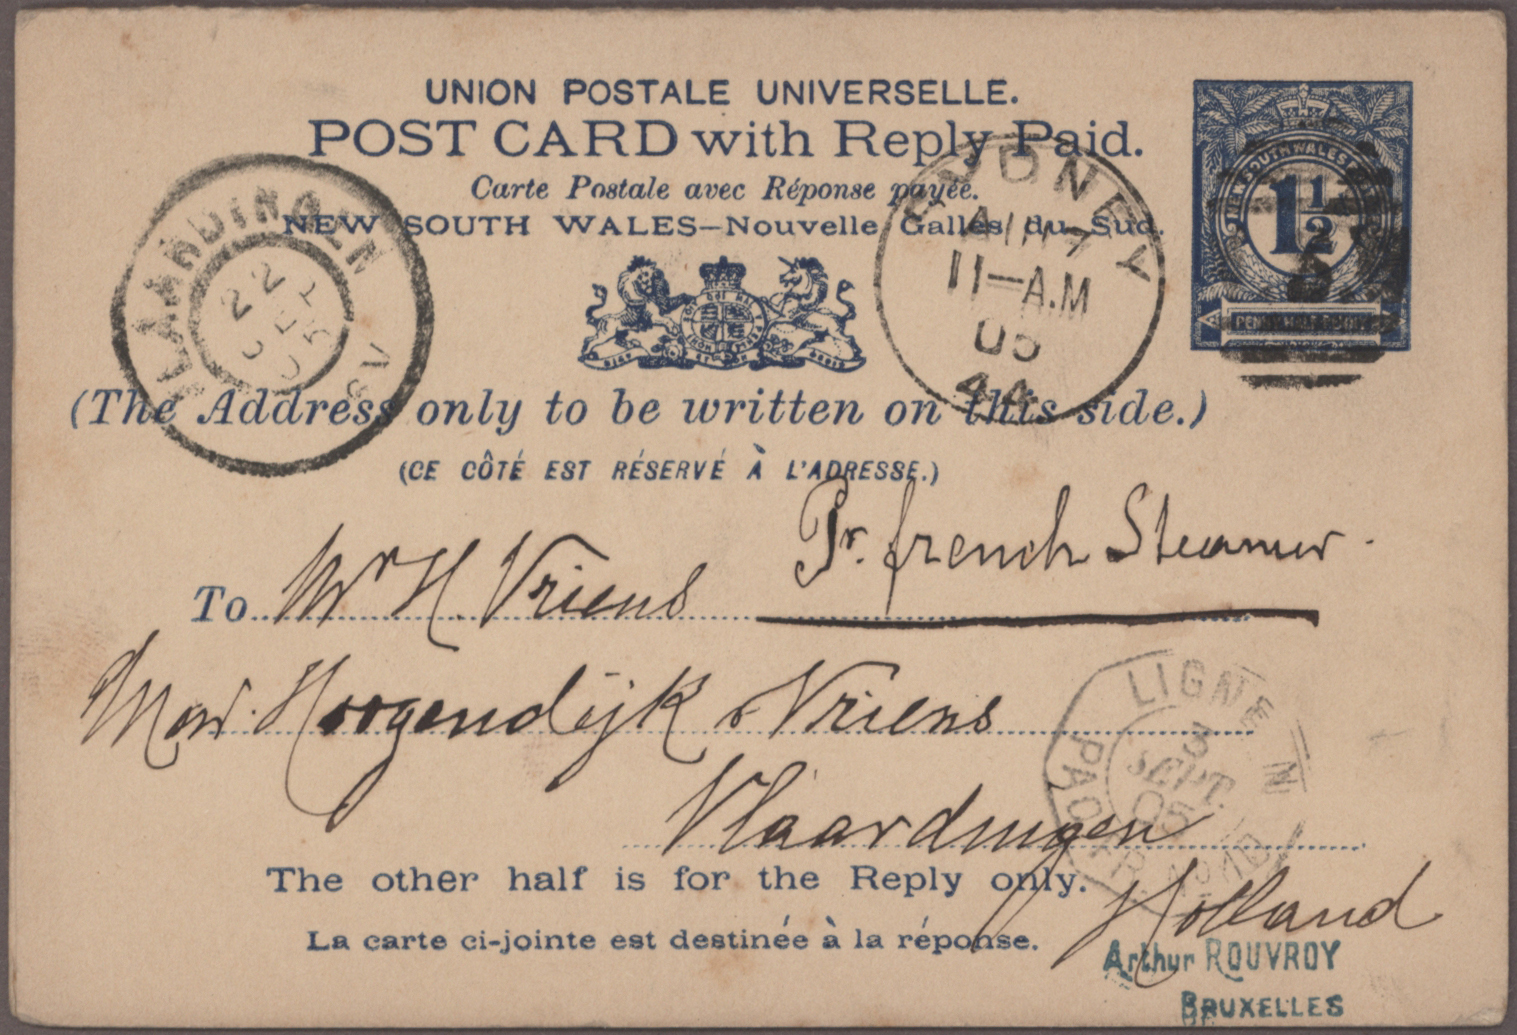 UNION POSTALE UNIVERSELLE.
POST CARD with Reply Paid.
Carte Postale avec Réponse payée.
NEW SOUTH WALES—Nouvelle Galles du Sud.
NEW SOUTH WALES
1½
PENNY HALF PENNY
SYDNEY
AU 7
11—A.M
05
44
VLAARDINGEN
22
05
(The Address only to be written on this side.)
(CE CÔTÉ EST RÉSERVÉ À L'ADRESSE.)
Pr. french Steamer.
To Mr H. Vriens
Hoogendijk & Vriens
Vlaardingen
Holland
LIGNE N
3
SEPT.
05
PAQ. FR.
The other half is for the Reply only.
La carte ci-jointe est destinée à la réponse.
Arthur ROUVROY
BRUXELLES